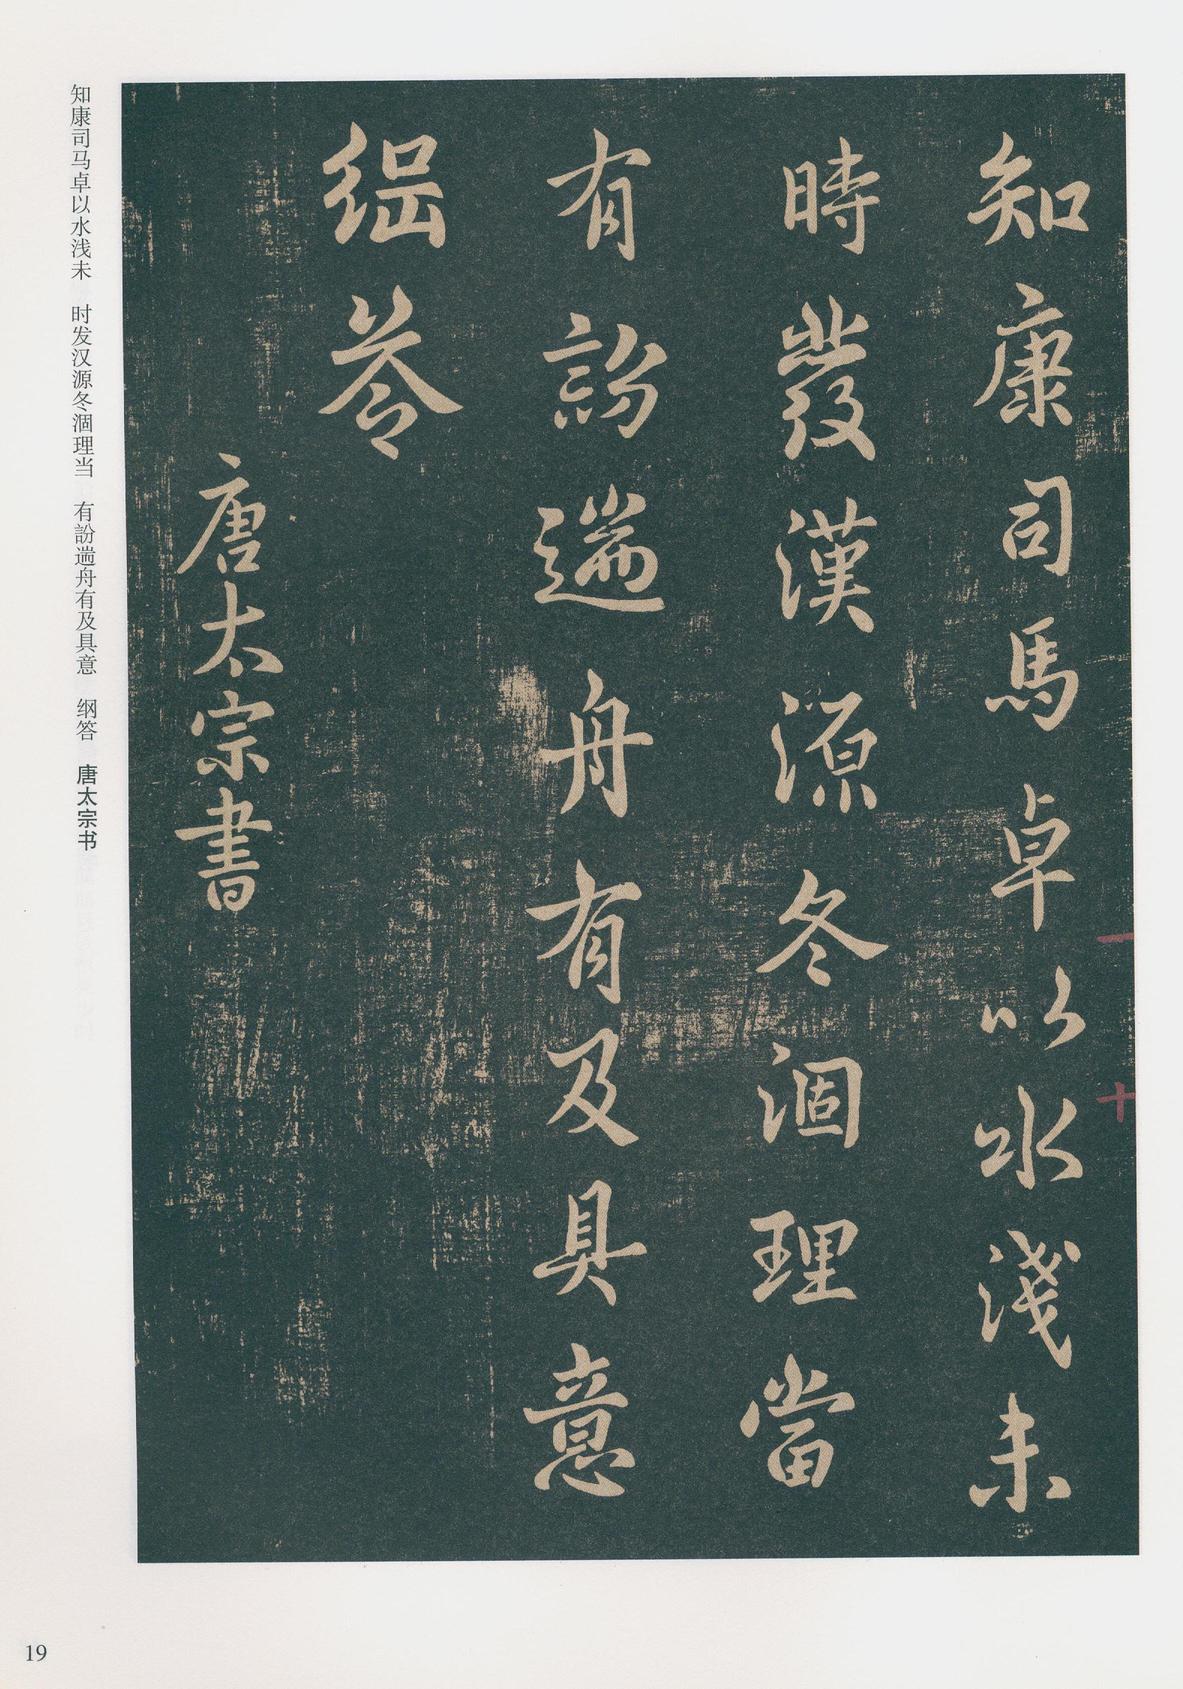 知康司馬卓以水淺未
時發漢源冬涸理當
有訜遄舟有及具意
綱荅
唐太宗書
知康司马卓以水浅未　时发汉源冬涸理当　有訜遄舟有及具意　纲答　唐太宗书
19